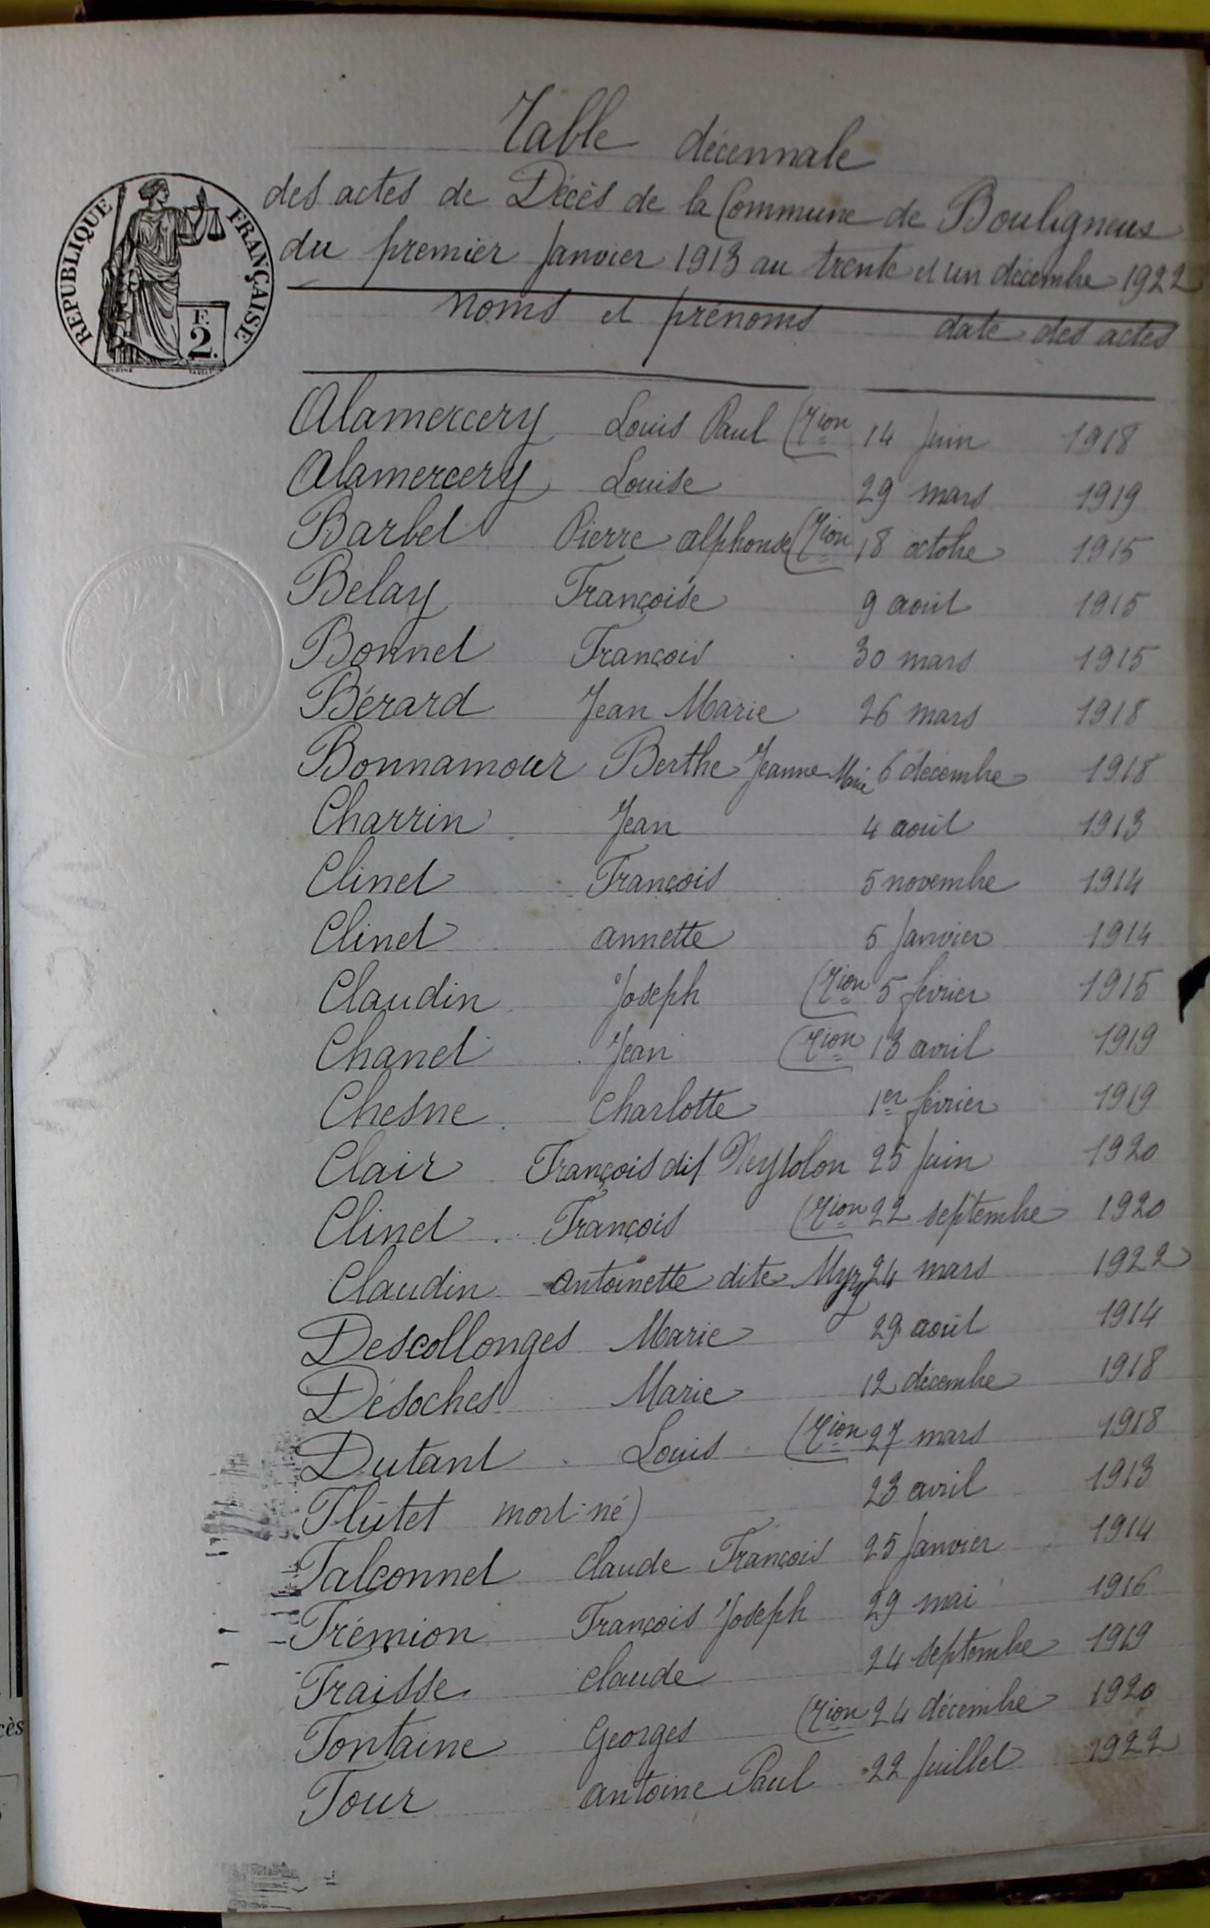 Table décennale
des actes de Décès de la Commune de Bouligneux
du premier Janvier 1913 au trente et un décembre 1922
REPUBLIQUE FRANÇAISE
F.
2.
noms et prénoms date des actes
Alamercery Louis Paul (Tion 14 Juin 1918
Alamercery Louise 29 mars 1919
Barbet Pierre alphonse (Tion 18 octobre 1915
Belay Françoise 9 août 1915
Bonnet François 30 mars 1915
Bérard Jean Marie 26 mars 1918
Bonnamour Berthe Jeanne Marie 6 décembre 1918
Charrin Jean 4 août 1913
Clinet François 5 novembre 1914
Clinet annette 5 Janvier 1914
Claudin Joseph (Tion 5 février 1915
Chanel Jean (Tion 13 avril 1919
Chesne Charlotte 1er février 1919
Clair François dit 25 Juin 1920
Clinet François (Tion 22 septembre 1920
Claudin Antoinette dite 24 mars 1922
Descollonges Marie 29 août 1914
Désoches Marie 12 décembre 1918
Dutant Louis (Tion 27 mars 1918
Flûtet mort-né) 23 avril 1913
Falconnet Claude François 25 Janvier 1914
Frémion François Joseph 29 mai 1916
Fraisse Claude 24 septembre 1919
Fontaine Georges (Tion 24 décembre 1920
Four antoine Paul 22 Juillet 1922
cès